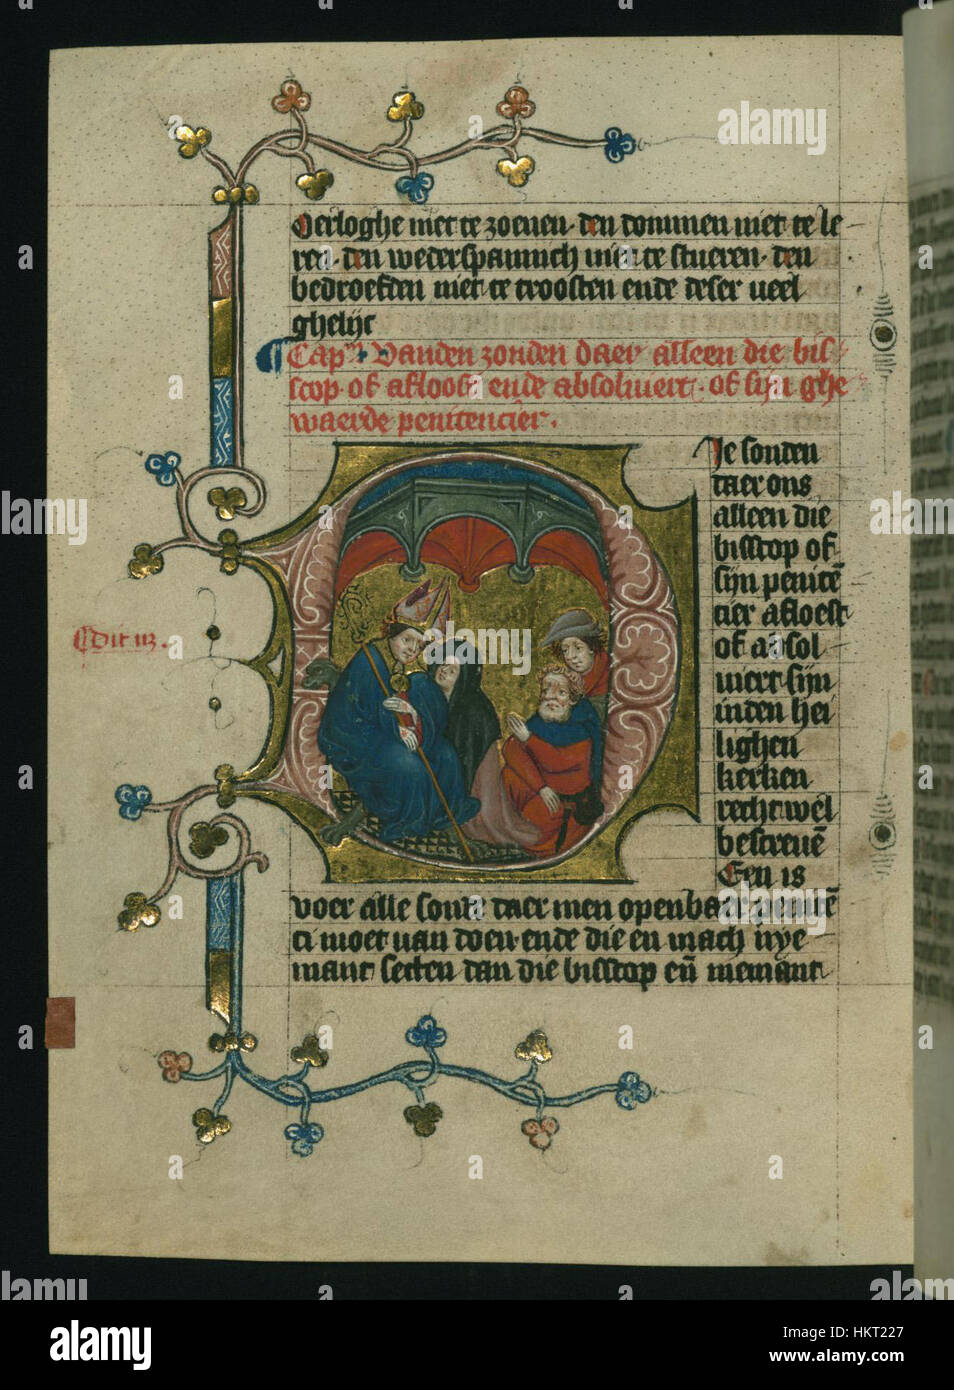 Oerloghe niet te zoenen · den dommen niet te le
ren · den wederspannich niet te stueren · den
bedroefden niet te troosten ende deser veel
ghelijc
Capm Vanden zonden daer alleen die bis
scop · of afloost ende absoluiert · of sijn ghe
waerde penitencier .
Die sonden
daer ons
alleen die
bisscop of
sijn penitē
cier afloest
of absol
uiert sijn
inden hei
lighen
kerken
recht wel
bescreuē
Een is
voer alle sonde daer men openbaer penitē
ci moet van doen · ende die en mach nye
mant setten dan die bisscop eñ niemant
alamy
Image ID: HKT227
www.alamy.com